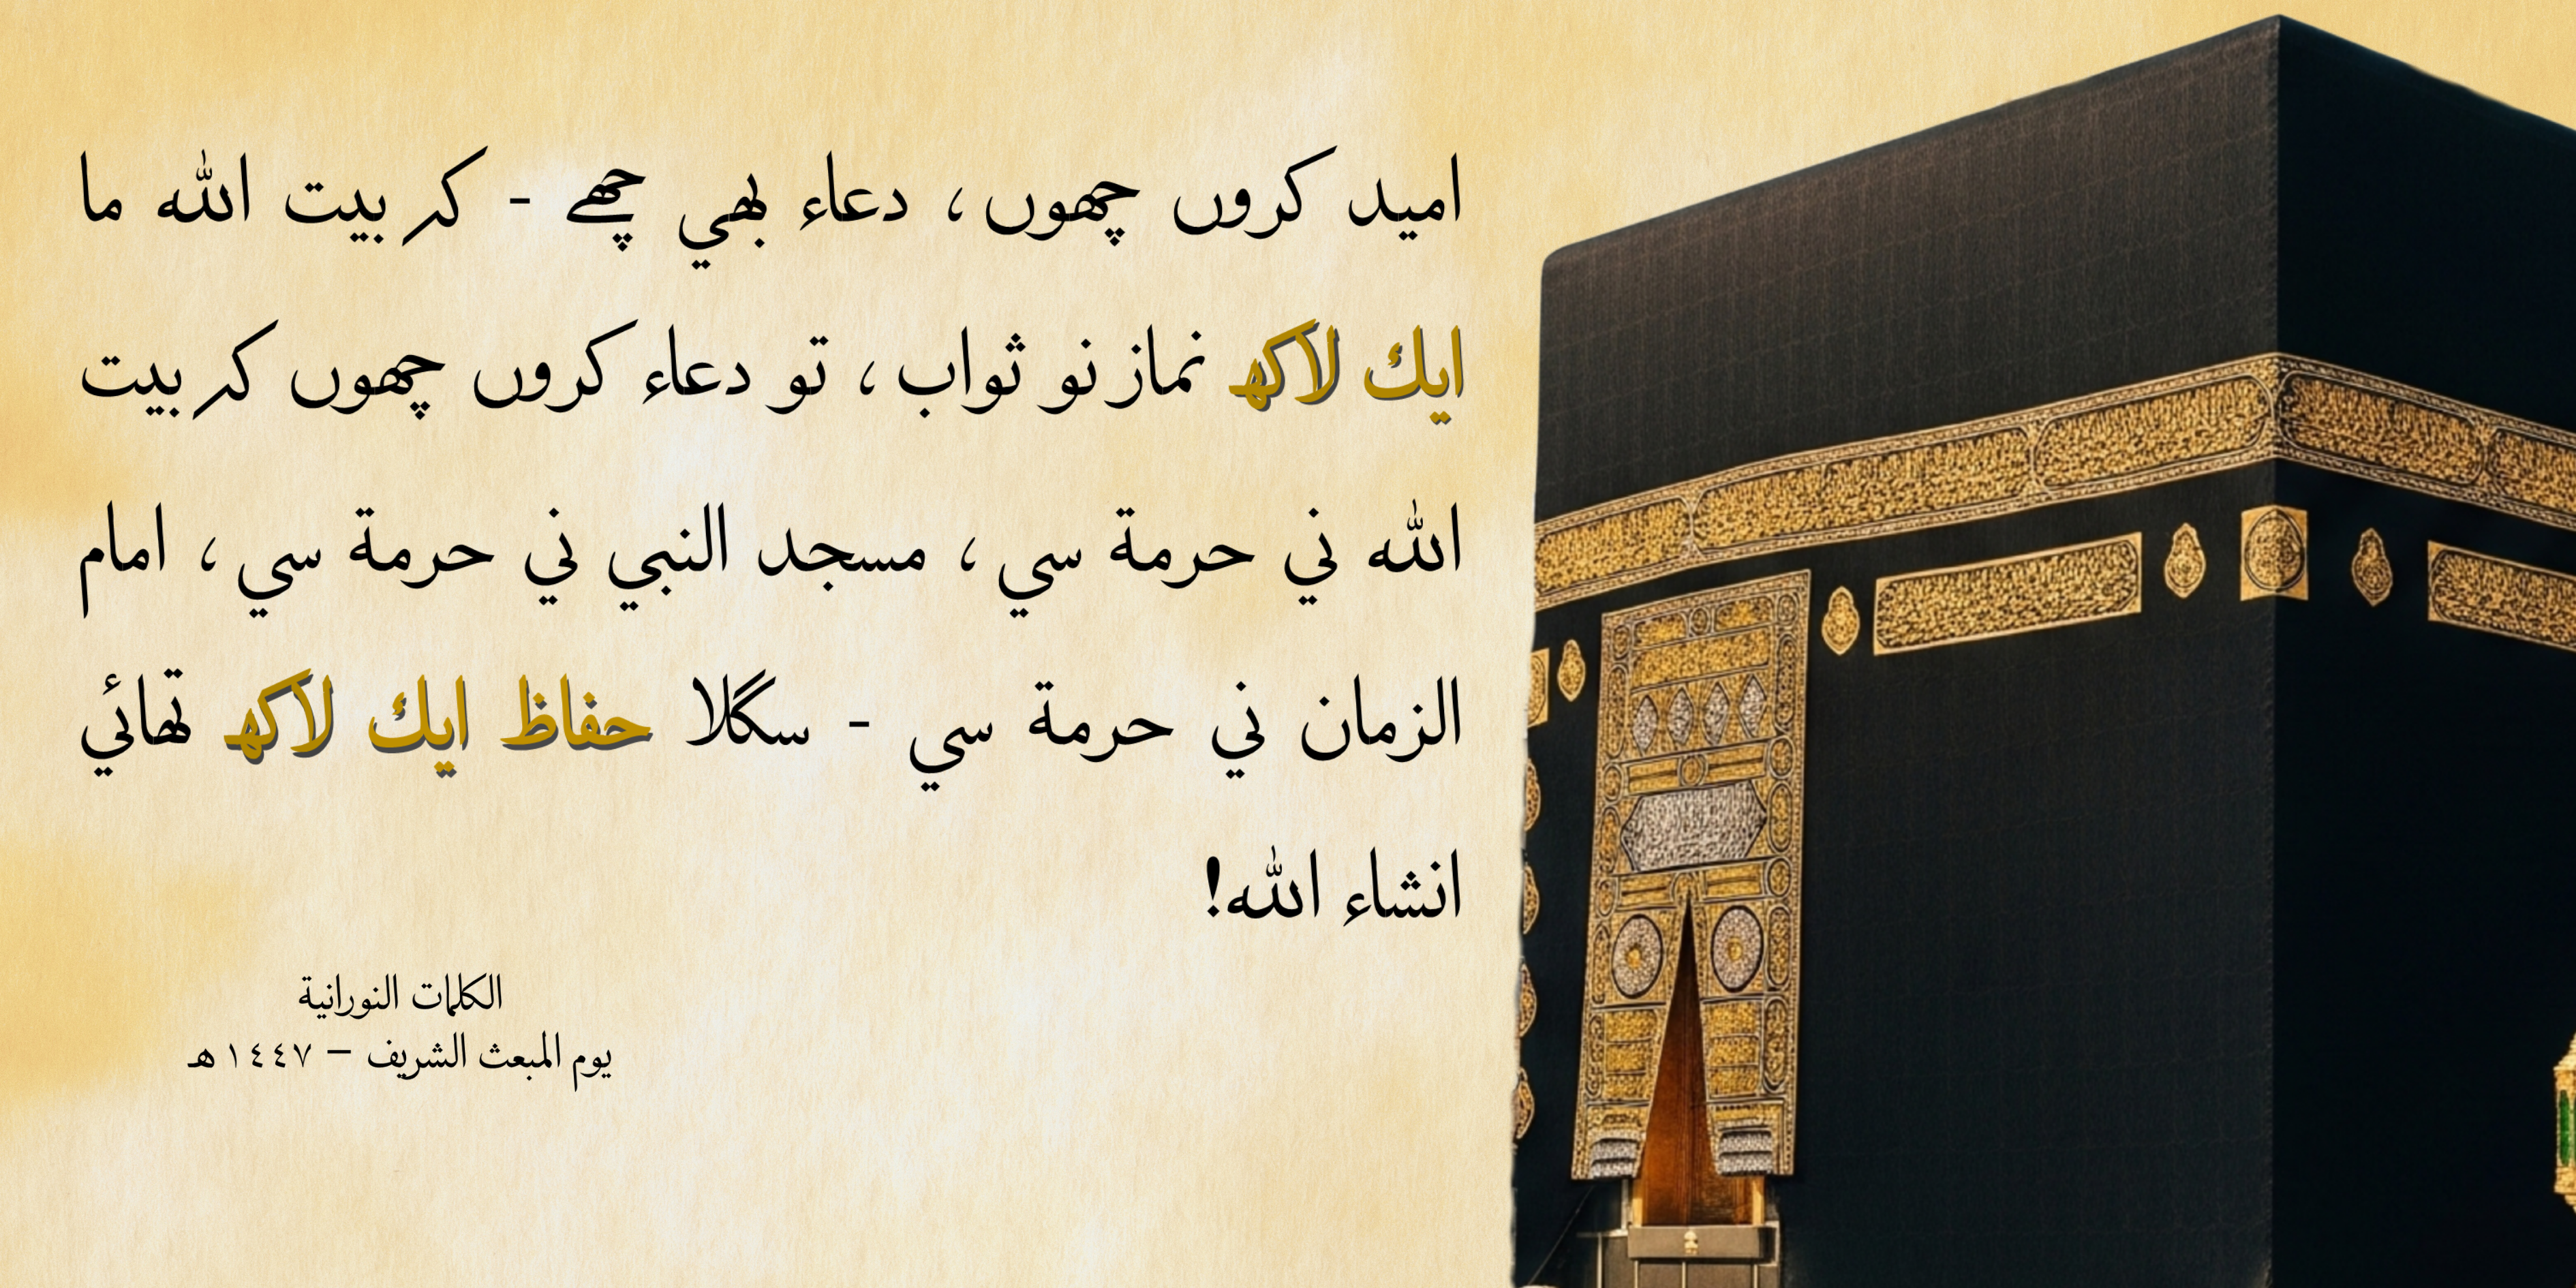 اميد كروں چھوں، دعاء بھي چھے - كہ بيت الله ما
ايك لاكھ نماز نو ثواب، تو دعاء كروں چھوں كہ بيت
الله ني حرمة سي، مسجد النبي ني حرمة سي، امام
الزمان ني حرمة سي - سگلا حفاظ ايك لاكھ تھائي
انشاء الله!
الكلمات النورانية
يوم المبعث الشريف – ١٤٤٧هـ